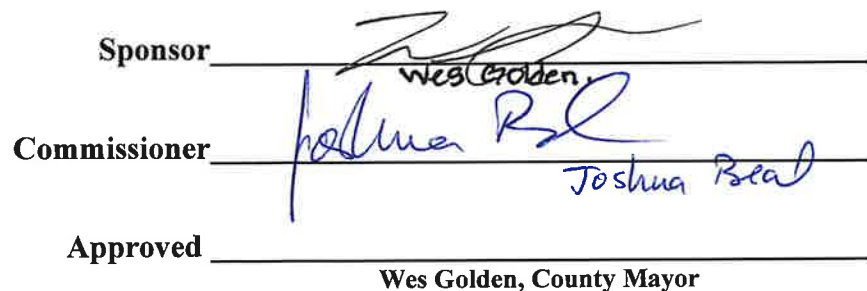 Sponsor
Wes Golden.
Commissioner Joshua
Joshua Beal
Approved
Wes Golden, County Mayor